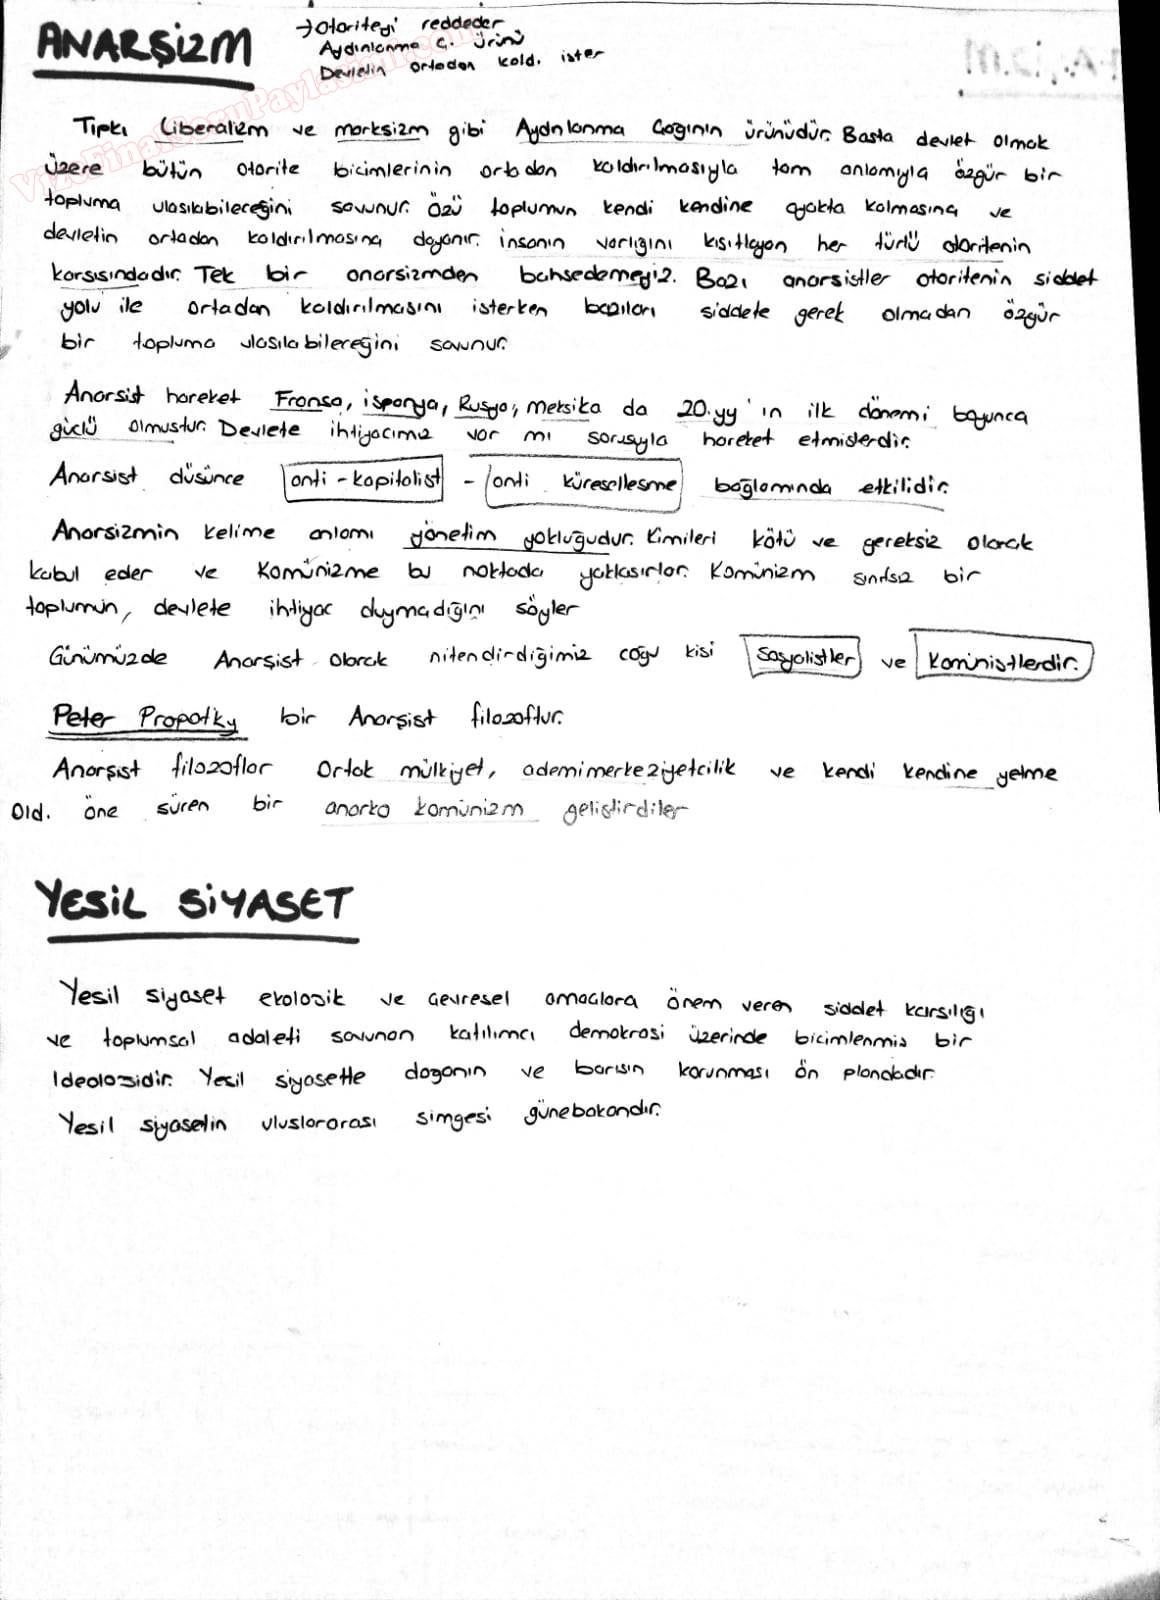 ANARŞİZM
→Otoriteyi reddeder
Aydınlanma Ç. ürünü
Devletin ortadan kald. ister
VizeFinalSoruPaylasimi.com
Tıpkı Liberalizm ve marksizm gibi Aydınlanma Çağının ürünüdür. Basta devlet olmak
üzere bütün otorite bicimlerinin ortadan kaldırılmasıyla tam anlamıyla özgür bir
topluma ulasılabileceğini savunur. Özü toplumun kendi kendine ayakta kalmasına ve
devletin ortadan kaldırılmasına dayanır. insanın varlığını kısıtlayan her türlü otoritenin
karsısındadır. Tek bir anarsizmden bahsedemeyiz. Bazı anarsistler otoritenin siddet
yolu ile ortadan kaldırılmasını isterken bazıları siddete gerek olmadan özgür
bir topluma ulasılabileceğini savunur.
Anarsist hareket Fransa, ispanya, Rusya, meksika da 20.yy'ın ilk dönemi boyunca
güclü olmustur. Devlete ihtiyacımız var mı sorusyla hareket etmislerdir.
Anarsist düsünce anti-kapitalist - anti küresellesme bağlamında etkilidir.
Anarsizmin kelime anlamı yönetim yokluğudur. Kimileri kötü ve gereksiz olarak
kabul eder ve Komünizme bu noktada yaklasırlar. Komünizm sınıfsız bir
toplumun, devlete ihtiyac duymadığını söyler
Günümüzde Anarşist olarak nitendirdiğimiz coğu kisi sosyalistler ve kominsitlerdir.
Peter Propotky bir Anarşist filozoftur.
Anarşist filozoflar Ortak mülkiyet, ademimerkeziyetcilik ve kendi kendine yetme
Old. öne süren bir anarko komünizm geliştirdiler
YESİL SİYASET
Yesil siyaset ekolozik ve Cevresel amaclara önem veren siddet karsılığı
ve toplumsal adaleti savunan katılımcı demokrasi üzerinde bicimlenmis bir
Ideolozidir. Yesil siyasette doganın ve barısın korunması ön plandadır.
Yesil siyasetin uluslararası simgesi günebakandır.